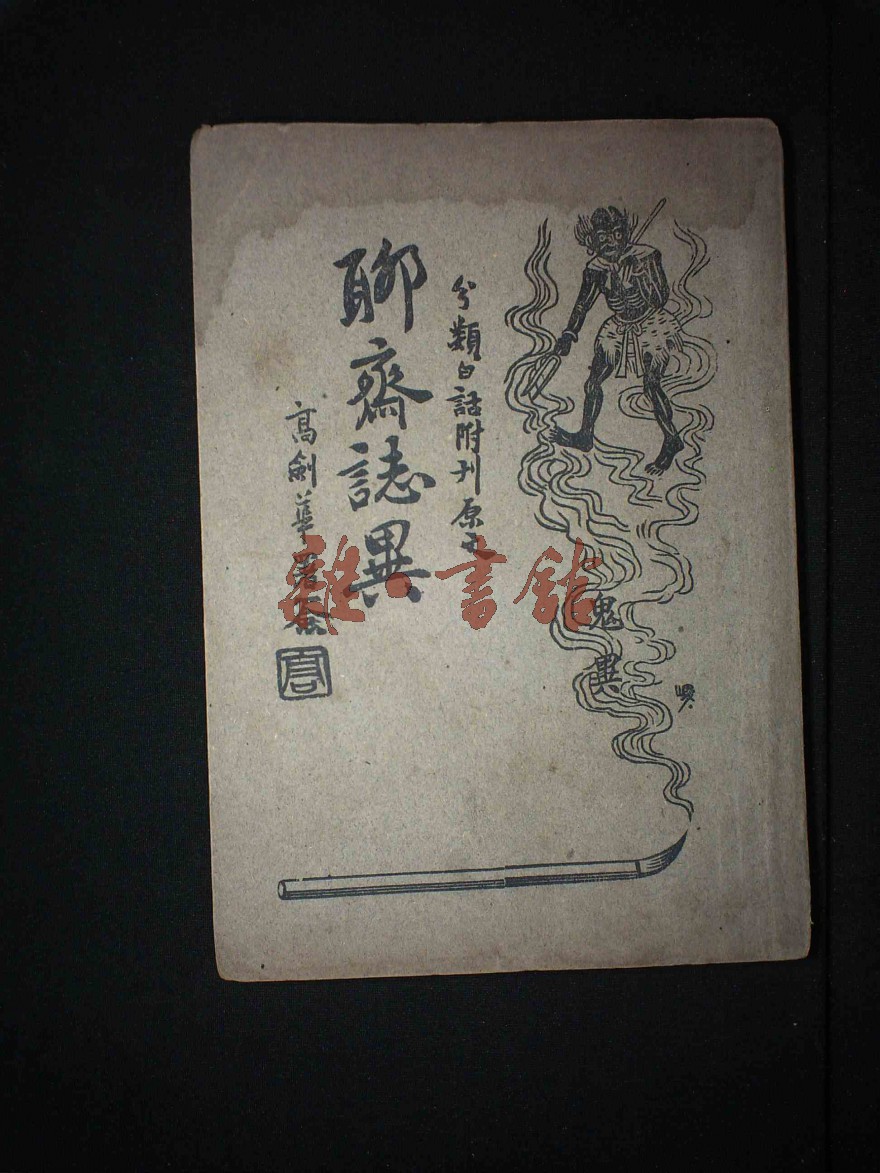 鬼異
分類白話附刊原文
聊齋誌異
高劍華署簽
雜·書館